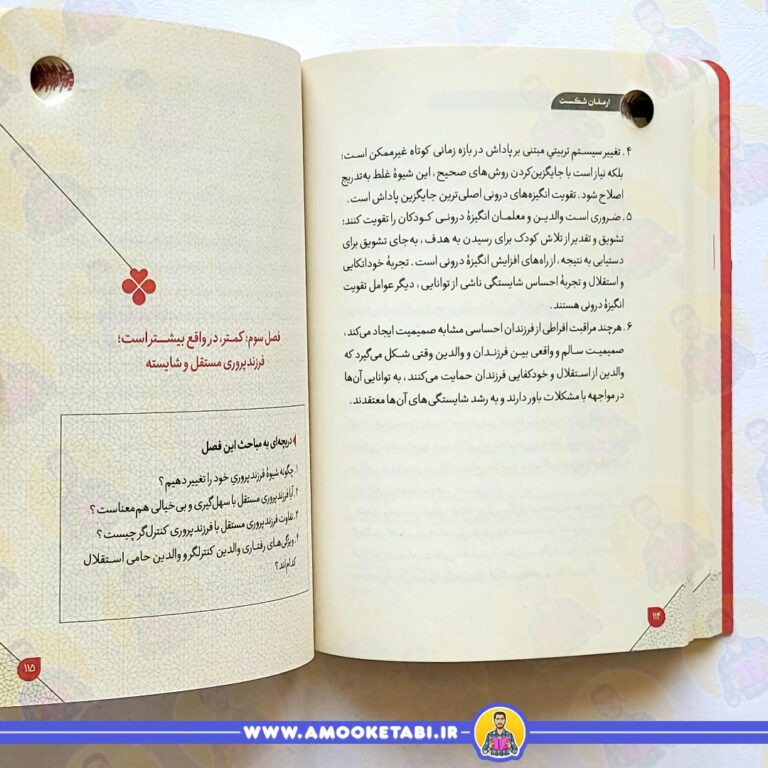 ارمغان شکست
۴. تغییر سیستم تربیتیِ مبتنی بر پاداش در بازه زمانی کوتاه غیرممکن است؛
بلکه نیاز است با جایگزین‌کردن روش‌های صحیح، این شیوهٔ غلط به‌تدریج
اصلاح شود. تقویت انگیزه‌های درونی اصلی‌ترین جایگزین پاداش است.
۵. ضروری است والدین و معلمان انگیزهٔ درونی کودکان را تقویت کنند؛
تشویق و تقدیر از تلاش کودک برای رسیدن به هدف، به‌جای تشویق برای
دستیابی به نتیجه، از راه‌های افزایش انگیزهٔ درونی است. تجربهٔ خوداتکایی
و استقلال و تجربهٔ احساس شایستگی ناشی از توانایی، دیگر عوامل تقویت
انگیزهٔ درونی هستند.
۶. هرچند مراقبت افراطی از فرزندان احساسی مشابه صمیمیت ایجاد می‌کند،
صمیمیت سالم و واقعی بین فرزندان و والدین وقتی شکل می‌گیرد که
والدین از استقلال و خودکفایی فرزندان حمایت می‌کنند، به توانایی آن‌ها
در مواجهه با مشکلات باور دارند و به رشد شایستگی‌های آن‌ها معتقدند.
۱۱۴
فصل سوم: کمتر، در واقع بیشتر است؛
فرزندپروری مستقل و شایسته
دریچه‌ای به مباحث این فصل
۱. چگونه شیوهٔ فرزندپروری خود را تغییر دهیم؟
۲. آیا فرزندپروری مستقل با سهل‌گیری و بی‌خیالی هم‌معناست؟
۳. تفاوت فرزندپروری مستقل با فرزندپروری کنترل‌گر چیست؟
۴. ویژگی‌های رفتاری والدین کنترلگر و والدین حامی استقلال
کدام‌اند؟
۱۱۵
WWW.AMOOKETABI.IR